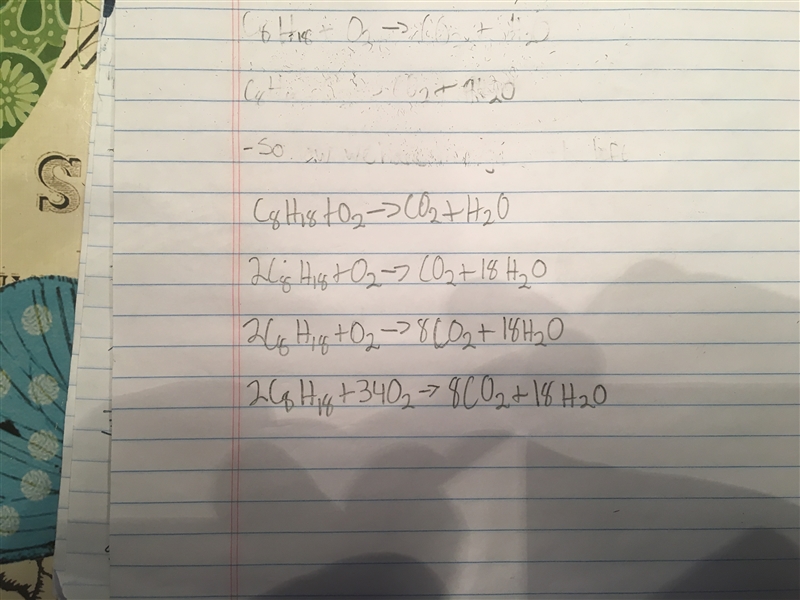 C8H18 + O2 → CO2 + H2O
-so
C8H18+O2→CO2+H2O
2C8H18+O2→CO2+18H2O
2C8H18+O2→8CO2+18H2O
2C8H18+34O2→8CO2+18H2O
S